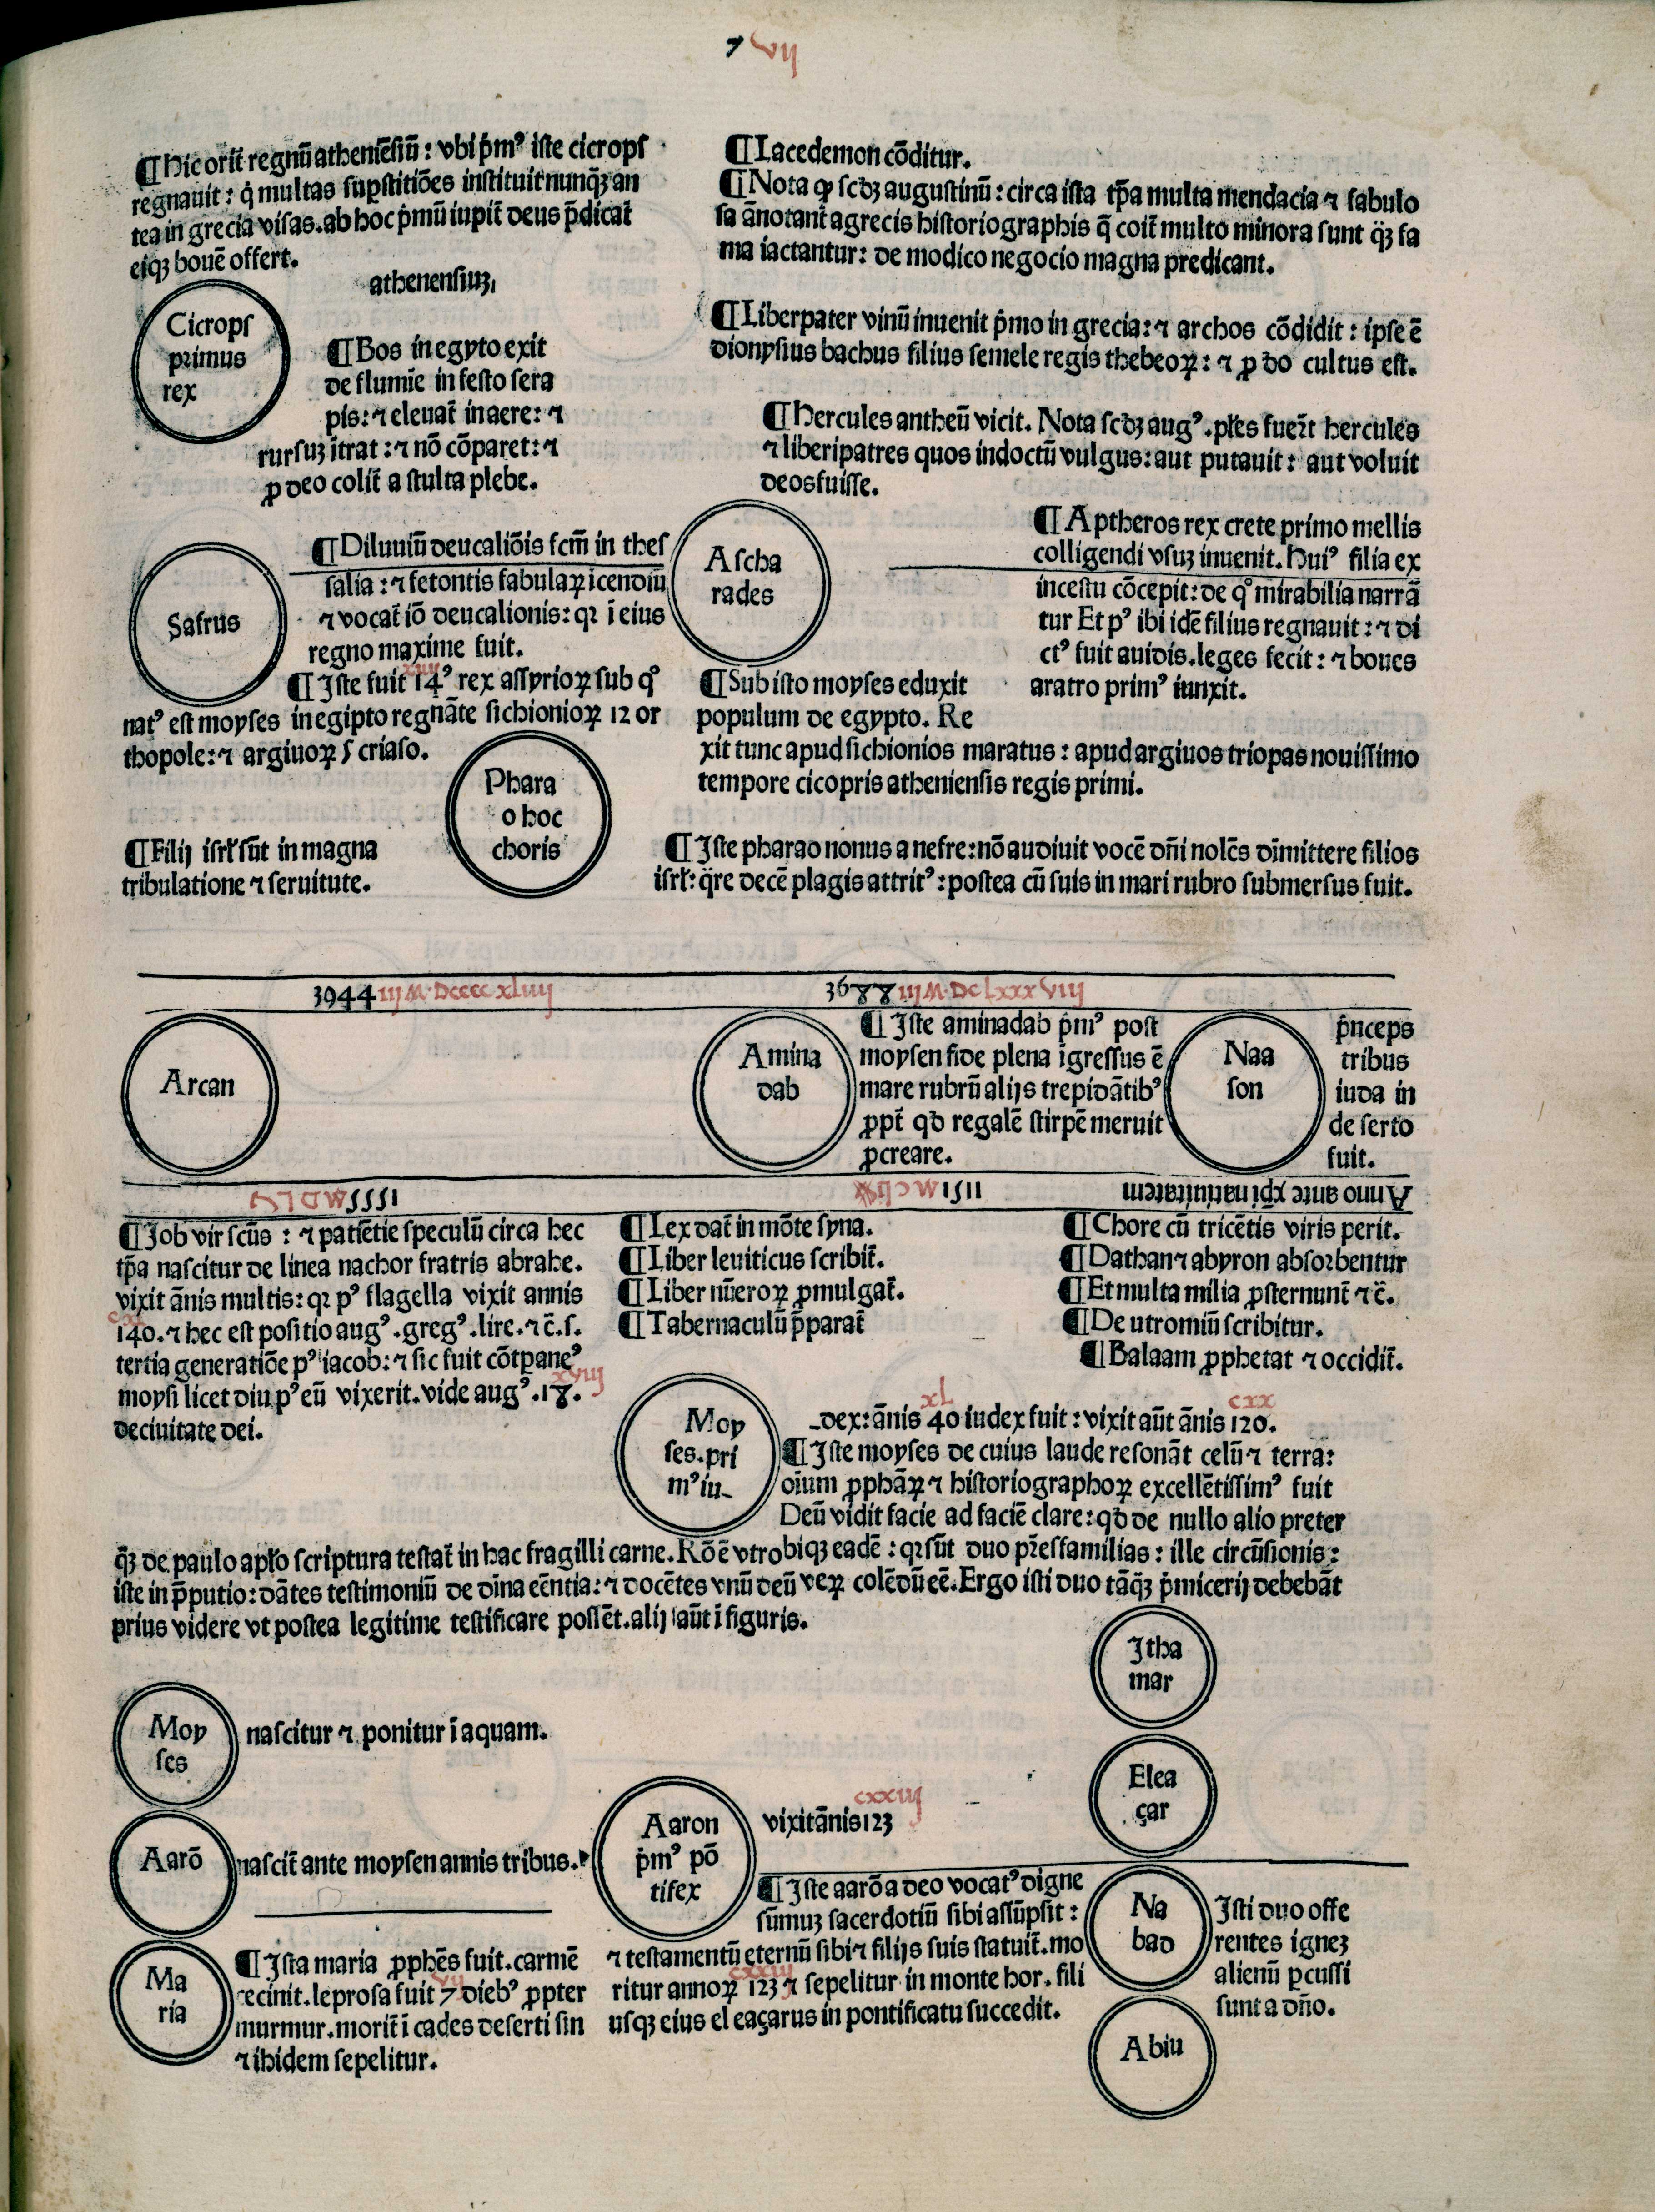 7 vij
¶Hic orit̄ regnū atheniēsiū: vbi p̄m⁹ iste cicrops
regnauit: q̇ multas suꝑstitiōes instituit nunqꝫ an
tea in grecia visas. ab hoc p̄mū iupit̄ deus p̄dicat̄
eiqꝫ bouē offert.
athenensiuꝫ,
Cicrops
primus
rex
¶Bos in egypto exit
de flumīe in festo sera
pis: ⁊ eleuat̄ in aere: ⁊
rursuꝫ ītrat: ⁊ nō cōparet: ⁊
ꝓ deo colit̄ a stulta plebe.
¶Diluuiū deucaliōis fcm̄ in thes
salia: ⁊ fetontis fabulaꝝ īcendiū
⁊ vocat̄ iō deucalionis: qꝛ ī eius
regno maxime fuit.
Safrus
xiiij
¶Iste fuit 14⁹ rex assyrioꝝ sub q°
nat⁹ est moyses in egipto regnāte sichionioꝝ 12 or
thopole: ⁊ argiuoꝝ 5 criaso.
Phara
o boc
choris
¶Filij isrł sūt in magna
tribulatione ⁊ seruitute.
¶Lacedemon cōditur.
¶Nota ꝙ scd̄ꝫ augustinū: circa ista tp̄a multa mendacia ⁊ fabulo
sa ānotant̄ a grecis historiographis q̄ coit̄ multo minora sunt q̄ꝫ fa
ma iactantur: de modico negocio magna predicant.
¶Liberpater vinū inuenit p̄mo in grecia: ⁊ archos cōdidit: ipse ē
dionysius bachus filius semele regis thebeoꝝ: ⁊ ꝓ do cultus est.
¶Hercules antheū vicit. Nota scd̄ꝫ aug⁹. płes fuer̄t hercules
⁊ liberipatres quos indoctū vulgus: aut putauit: aut voluit
deos fuisse.
Ascha
rades
¶Aptheros rex crete primo mellis
colligendi vsuꝫ inuenit. Hui⁹ filia ex
incestu cōcepit: de q° mirabilia narrā
tur Et p⁹ ibi idē filius regnauit: ⁊ di
ct⁹ fuit auidis. leges fecit: ⁊ boues
aratro prim⁹ iunxit.
¶Sub isto moyses eduxit
populum de egypto. Re
xit tunc apud sichionios maratus: apud argiuos triopas nouissimo
tempore cicopris atheniensis regis primi.
¶Iste pharao nonus a nefre: nō audiuit vocē dn̄i nolēs dīmittere filios
isrł: q̄re decē plagis attrit⁹: postea cū suis in mari rubro submersus fuit.
3944 iij M. Dcccc xliiij
3688 iij M. Dc lxxx viij
Arcan
Amina
dab
¶Iste aminadab p̄m⁹ post
moysen fide plena īgressus ē
mare rubrū alijs trepidātib⁹
ꝓpt̄ qd̄ regalē stirpē meruit
ꝓcreare.
Naa
son
p̄nceps
tribus
iuda in
deserto
fuit.
1555
1511
Anno ante xp̄i natiuitatem
¶Job vir scūs: ⁊ patiētie speculū circa hec
tp̄a nascitur de linea nachor fratris abrahe.
vixit ānis multis: qꝛ p⁹ flagella vixit annis
cxl
140. ⁊ hec est positio aug⁹. greg⁹. lire. ⁊ c̄. s.
tertia generatiōe p⁹ iacob: ⁊ sic fuit cōtꝑane⁹
xviij
moysi licet diu p⁹ eū vixerit. vide aug⁹. 18.
deciuitate dei.
¶Lex dat̄ in mōte syna.
¶Liber leuiticus scribit̄.
¶Liber nūeroꝝ ꝓmulgat̄.
¶Tabernaculū p̄parat̄
¶Chore cū tricētis viris perit.
¶Dathan ⁊ abyron absorbentur
¶Et multa milia ꝓsternunt̄ ⁊ c̄.
¶Deutromiū scribitur.
¶Balaam ꝓphetat ⁊ occidit̄.
Moy
ses. pri
m⁹ iu-
xl cxx
-dex: ānis 40 iudex fuit: vixit aūt ānis 120.
¶Iste moyses de cuius laude resonāt celū ⁊ terra:
oīum ꝓphāꝝ ⁊ historiographoꝝ excellētissim⁹ fuit
Deū vidit facie ad faciē clare: qd̄ de nullo alio preter
q̄ꝫ de paulo apło scriptura testat̄ in hac fragilli carne. Rō ē vtrobiqꝫ eadē: qꝛ sūt duo pr̄esfamilias: ille circūsionis:
iste in p̄putio: dātes testimoniū de dīna eēntia: ⁊ docētes vnū deū veꝝ colēdū eē. Ergo isti duo tāq̄ꝫ p̄micerij debebāt
prius videre vt postea legitime testificare possēt. alij aūt ī figuris.
Moy
ses
nascitur ⁊ ponitur ī aquam.
Aarō
nascit̄ ante moysen annis tribus.
Ma
ria
¶Ista maria ꝓphēs fuit. carmē
vij
cecinit. leprosa fuit 7 dieb⁹ ꝓpter
murmur. morit̄ ī cades deserti sin
⁊ ibidem sepelitur.
Aaron
p̄m⁹ pō
tifex
cxxiij
vixit ānis 123
¶Iste aarō a deo vocat⁹ digne
sūmuꝫ sacerdotiū sibi assūpsit:
⁊ testamentū eternū sibi ⁊ filijs suis statuit. mo
cxxiij
ritur annoꝝ 123 ⁊ sepelitur in monte hor. fili
usqꝫ eius eleaçarus in pontificatu succedit.
Itha
mar
Elea
çar
Na
bad
Isti duo offe
rentes igneꝫ
alienū ꝑcussi
sunt a dn̄o.
Abiu